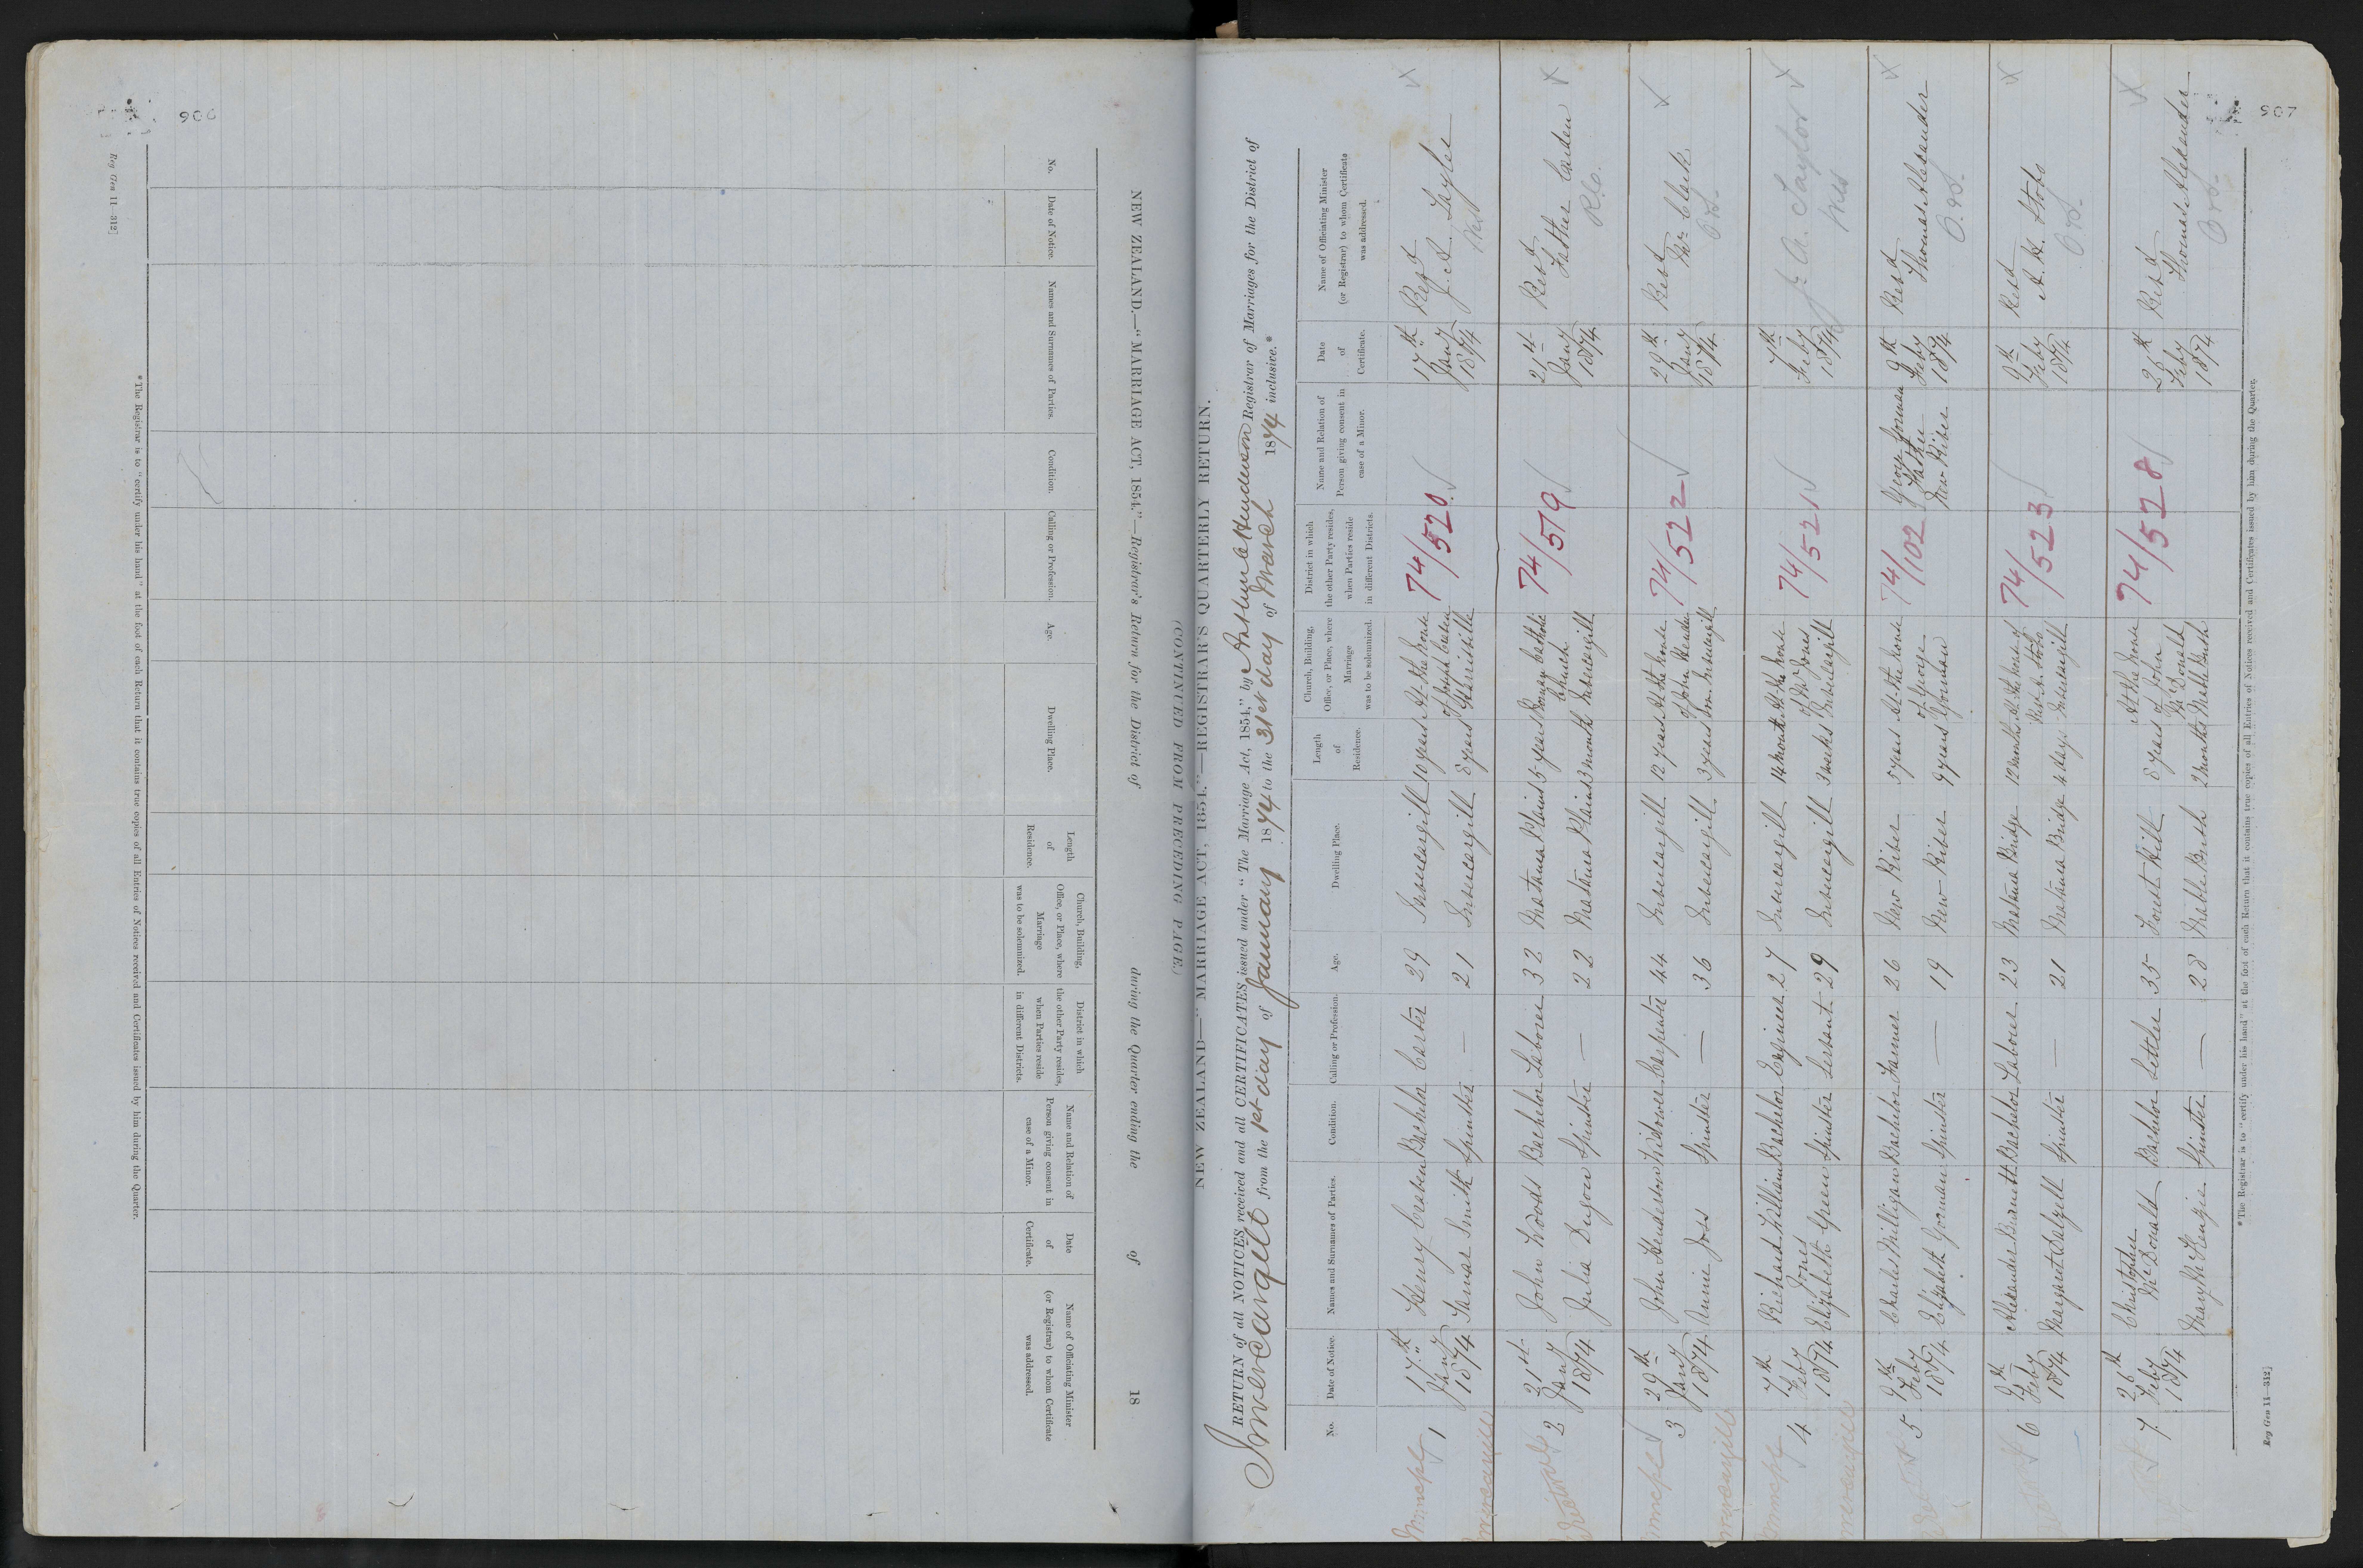 906
Reg Gen 11—312]
NEW ZEALAND.—"MARRIAGE ACT, 1854."—Registrar's Return for the District of during the Quarter ending the of 18
(CONTINUED FROM PRECEDING PAGE.)
No.
Date of Notice.
Names and Surnames of Parties.
Condition.
Calling or Profession.
Age.
Dwelling Place.
Length
of
Residence.
Church, Building,
Office, or Place, where
Marriage
was to be solemnized.
District in which
the other Party resides,
when Parties reside
in different Districts.
Name and Relation of
Person giving consent in
case of a Minor.
Date
of
Certificate.
Name of Officiating Minister
(or Registrar) to whom Certificate
was addressed.
*The Registrar is to "certify under his hand" at the foot of each Return that it contains true copies of all Entries of Notices received and Certificates issued by him during the Quarter.
907
NEW ZEALAND—"MARRIAGE ACT, 1854."—REGISTRAR'S QUARTERLY RETURN.
RETURN of all NOTICES received and all CERTIFICATES issued under "The Marriage Act, 1854," by Arthur C Henderson Registrar of Marriages for the District of
Invercargill from the 1st day of January 1874 to the 31st day of March 1874 inclusive.*
No.
Date of Notice.
Names and Surnames of Parties.
Condition.
Calling or Profession.
Age.
Dwelling Place.
Length
of
Residence.
Church, Building,
Office, or Place, where
Marriage
was to be solemnized.
District in which
the other Party resides,
when Parties reside
in different Districts.
Name and Relation of
Person giving consent in
case of a Minor.
Date
of
Certificate.
Name of Officiating Minister
(or Registrar) to whom Certificate
was addressed.
1
17th
Jany
1874
Henry Craben Bachelor Carter 29 Invercargill 10 years At the house
Smith Spinster — 21 Invercargill 8 years
74/520
17th
Jany
1874
Revd
J. A. Taylor
Invercargill
2
21st
Jany
1874
John Woods Bachelor Laborer 32 Mataura Plains 5 years Roman Catholic
Church
Julia Dugon Spinster — 22 Mataura Plains 3 months Invercargill
74/519
21st
Jany
1874
Revd
Father Carden
R.C.
3
29th
Jany
1874
John Henderson Widower Carpenter 44 Invercargill 12 years At the house
of John Hender
son Invercargill
Annie Joss Spinster — 36 Invercargill 3 years
74/522
29th
Jany
1874
Revd
Mr Clark
Invercargill
4
7th
Feby
1874
Richard William Bachelor Engineer 27 Invercargill 14 months At the house
Jones
Elizabeth Green Spinster Servant 29 Invercargill 3 weeks Invercargill
74/521
7th
Feby
1874
J. A. Taylor
Invercargill
5
9th
Feby
1874
Charles Milligan Bachelor Farmer 26 New River 5 years At the house
of George
Gorman
Elizabeth Gorman Spinster — 19 New River 9 years
74/102
George Gorman
Father
New River
9th
Feby
1874
Revd
Thomas Alexander
6
9th
Feby
1874
Alexander Burnett Bachelor Labourer 23 Mataura Bridge 12 months At the house of
Rev A. Stobo
Margaret Dalzell Spinster — 21 Mataura Bridge 4 days Invercargill
74/523
9th
Feby
1874
Revd
A. H. Stobo
7
26th
Feby
1874
Christopher
McDonald Bachelor Settler 35 Forest Hill 8 years At the house
of John
McDonald
Mary McKenzie Spinster — 28 Mable Bush 2 months Mable Bush
74/528
26th
Feby
1874
Revd
Thomas Alexander
*The Registrar is to "certify under his hand" at the foot of each Return that it contains true copies of all Entries of Notices received and Certificates issued by him during the Quarter.
Reg Gen 11—312]